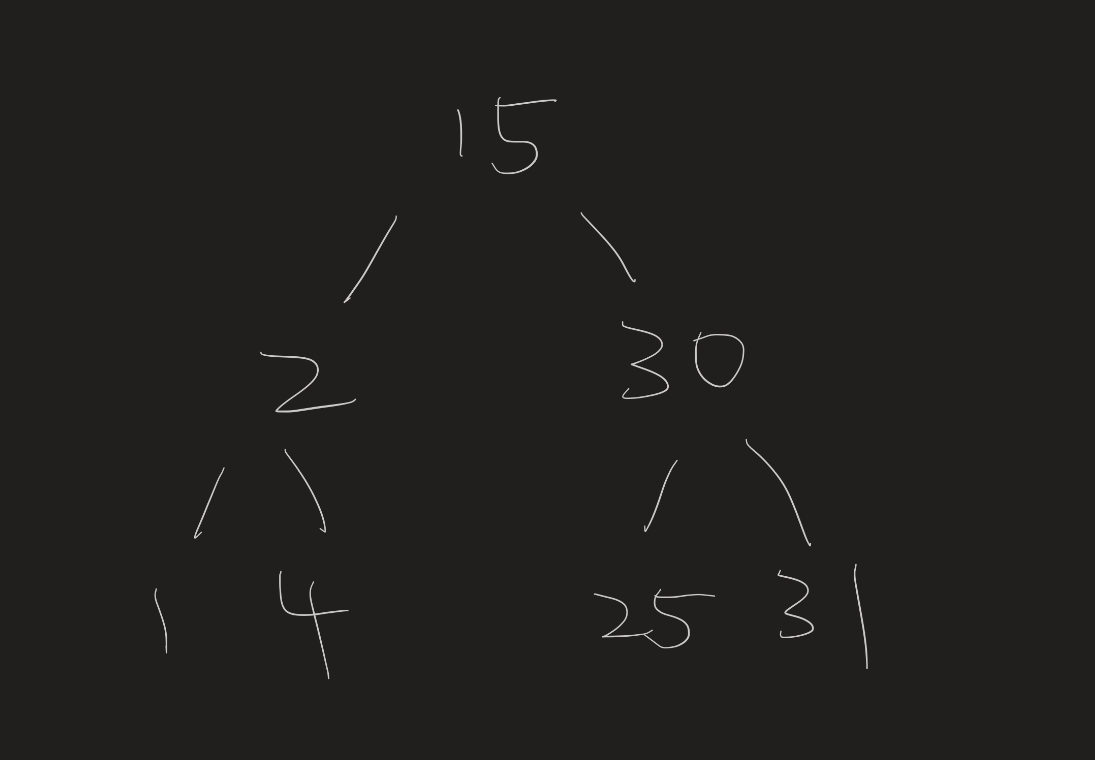 15
2 30
1 4 25 31